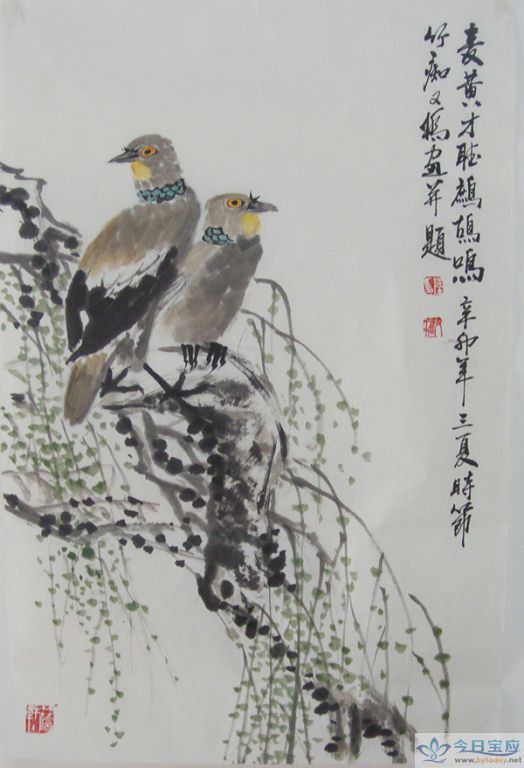 麦黄才听鹧鸪鸣 辛卯年三夏时节
竹痴又村画并题
今日宝应
www.bytoday.net